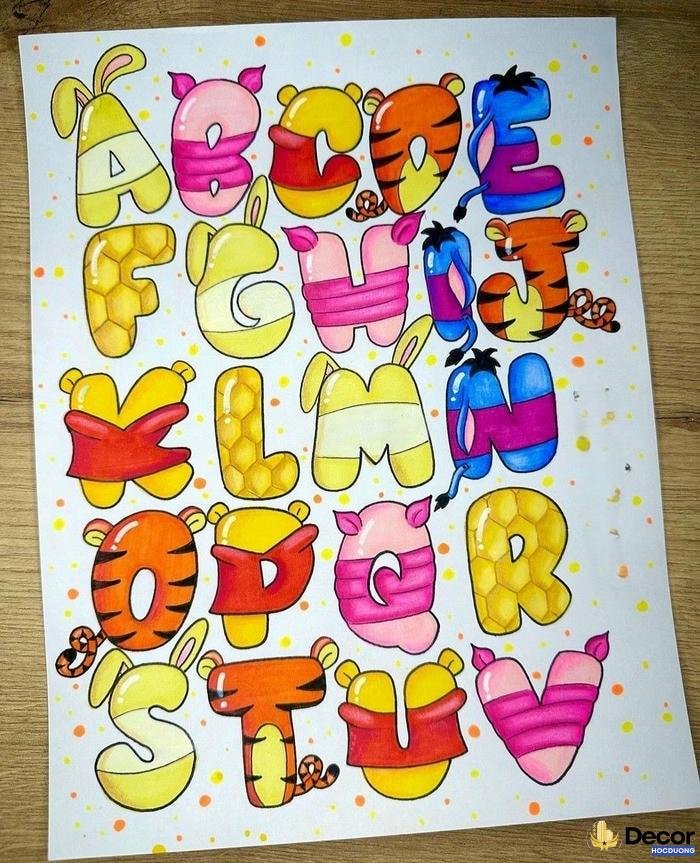 A B C D E
F G H I J
K L M N
O P Q R
S T U V
Decor
HOCDUONG